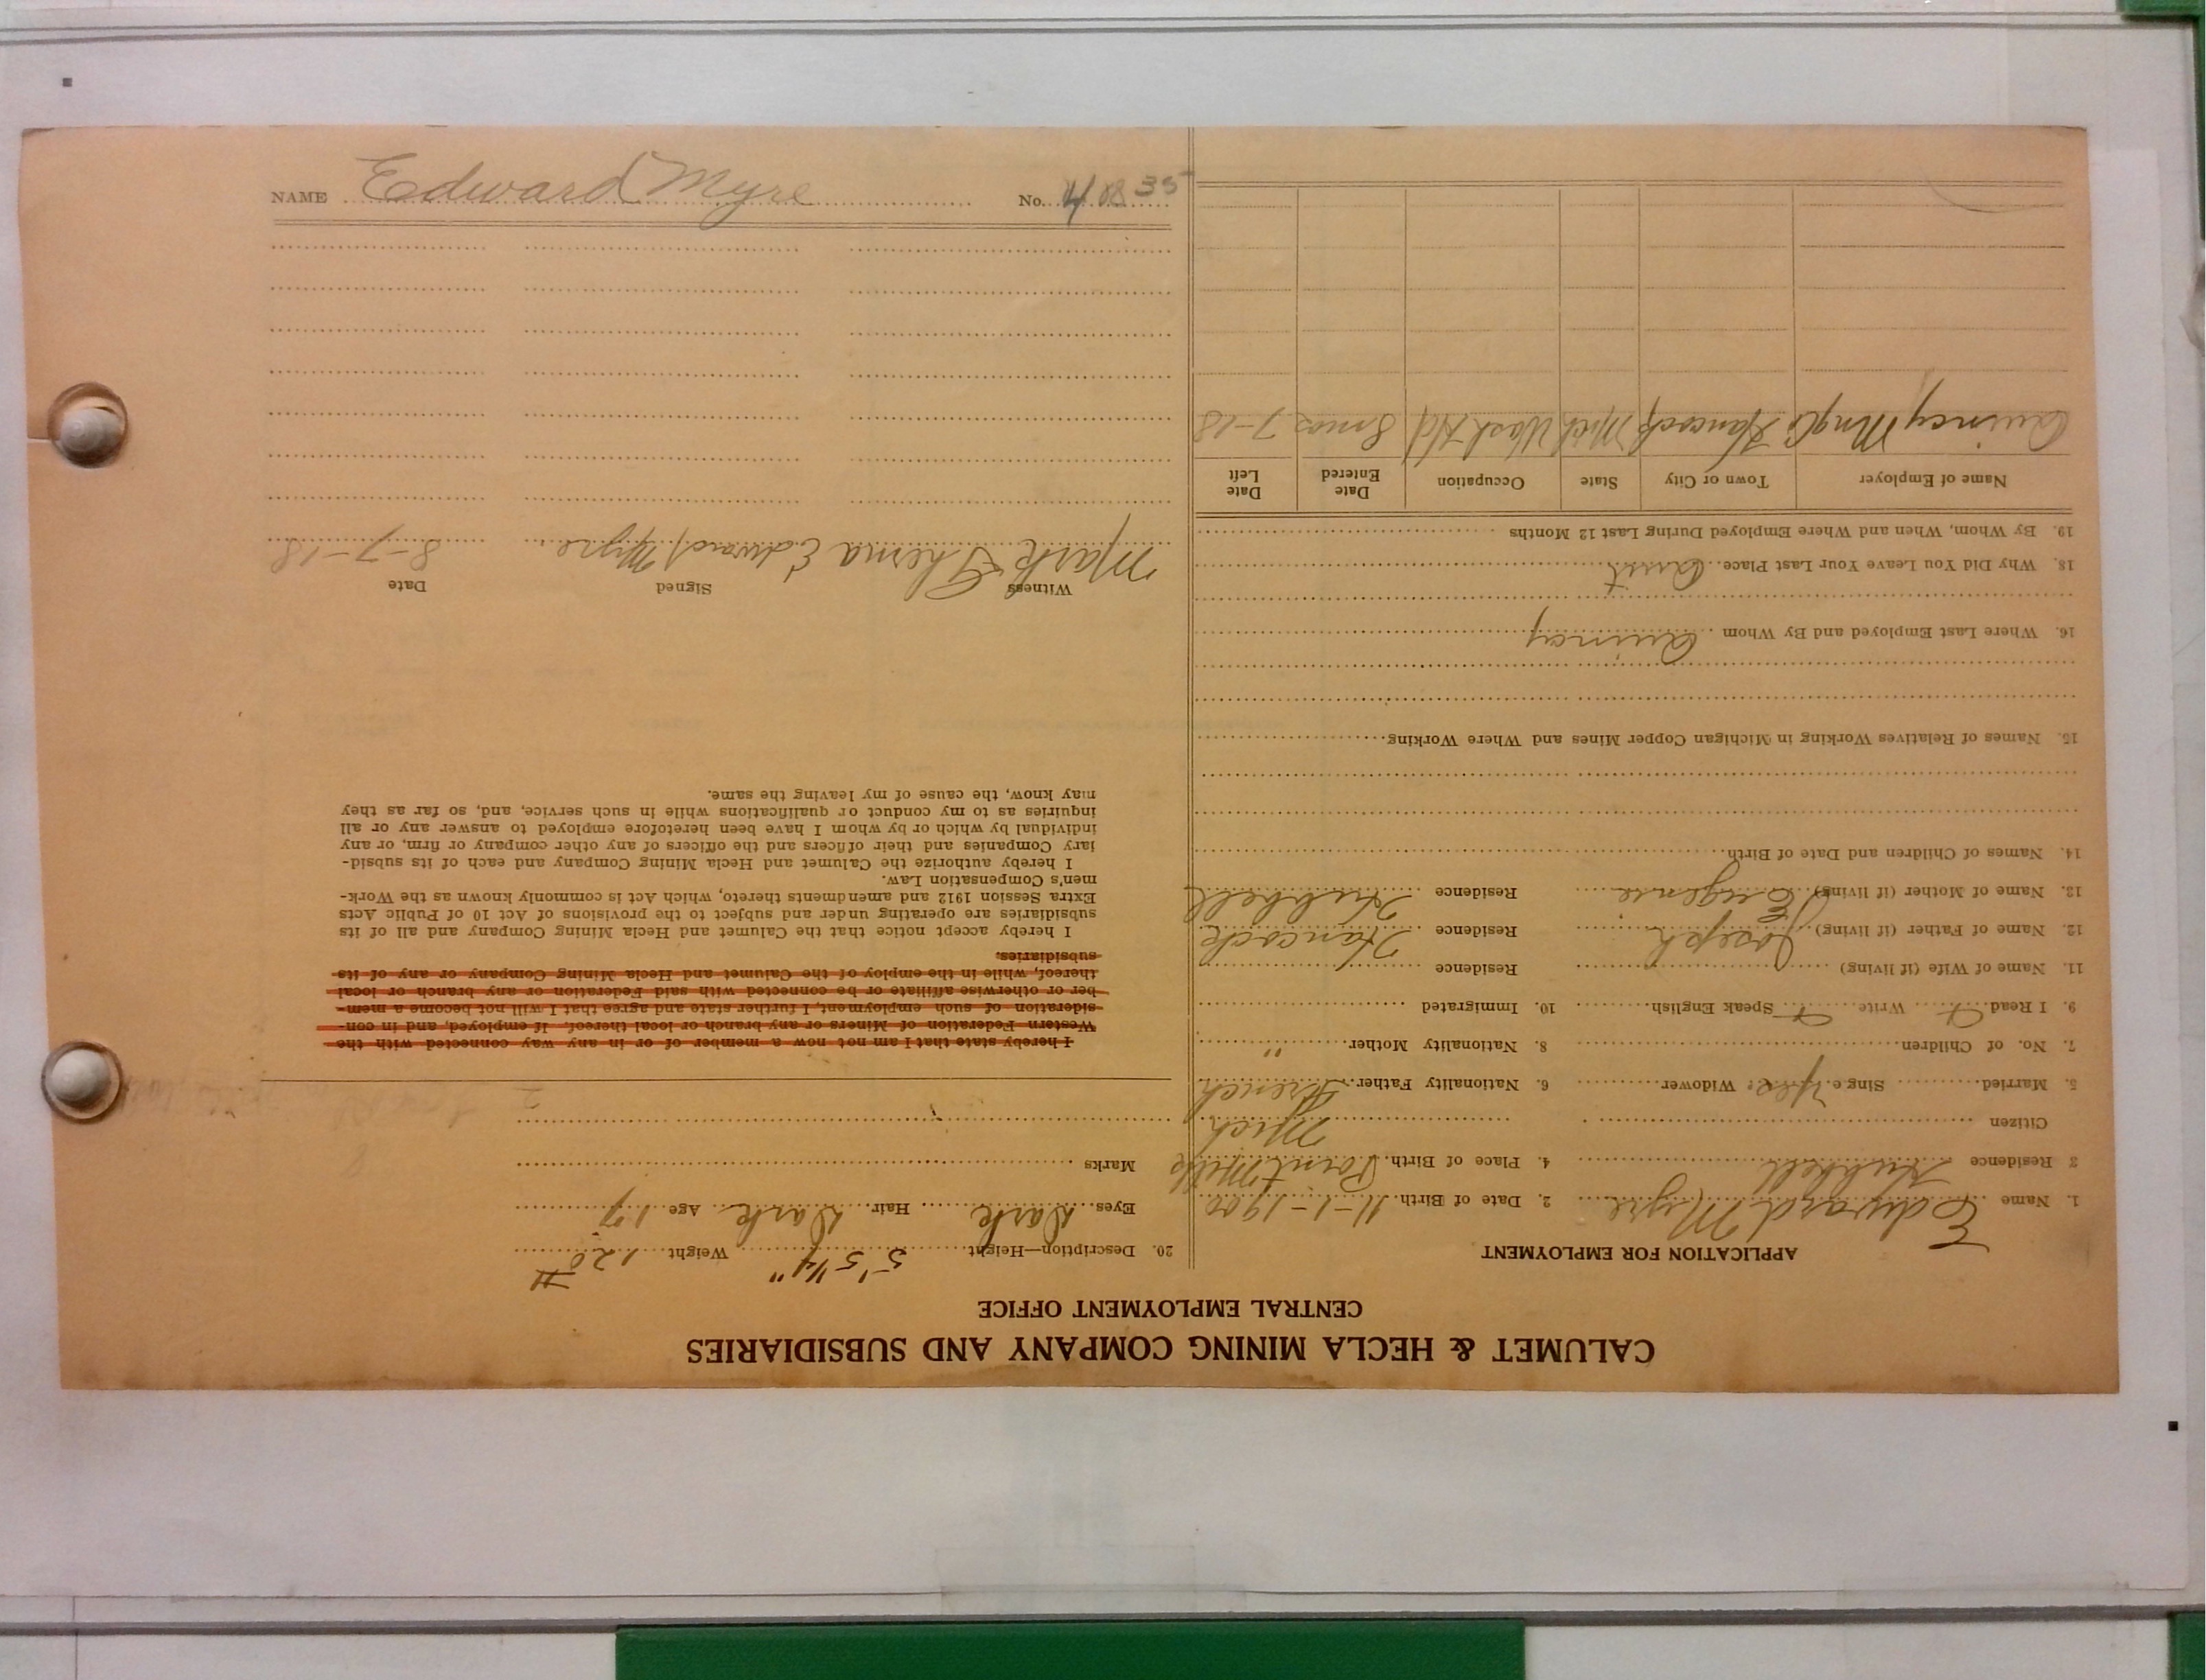 NAME Edward Myre No. 40835
CALUMET & HECLA MINING COMPANY AND SUBSIDIARIES
CENTRAL EMPLOYMENT OFFICE
APPLICATION FOR EMPLOYMENT
1. Name Edward Myre 2. Date of Birth 11-1-1900
3 Residence Hubbell 4. Place of Birth Point Mills
Citizen Mich
5. Married Single Yes Widower 6. Nationality Father French
7. No. of Children 8. Nationality Mother "
9. I Read Write Speak English 10. Immigrated
11. Name of Wife (if living) Residence
12. Name of Father (if living) Joseph Residence Hancock
13. Name of Mother (if living) Eugenie Residence Hubbell
14. Names of Children and Date of Birth
15. Names of Relatives Working in Michigan Copper Mines and Where Working
16. Where Last Employed and By Whom Quincy
18. Why Did You Leave Your Last Place Quit
19. By Whom, When and Where Employed During Last 12 Months
Name of Employer Town or City State Occupation Date Entered Date Left
Quincy Mng Co Hancock Mich Wash Hd 8 mos 7-18
20. Description—Height 5' 5 1/4" Weight 120 #
Eyes Dark Hair Dark Age 17
Marks
I hereby state that I am not now a member of or in any way connected with the
Western Federation of Miners or any branch or local thereof. If employed, and in con-
sideration of such employment, I further state and agree that I will not become a mem-
ber or otherwise affiliate or be connected with said Federation or any branch or local
thereof, while in the employ of the Calumet and Hecla Mining Company or any of its
subsidiaries.
I hereby accept notice that the Calumet and Hecla Mining Company and all of its
subsidiaries are operating under and subject to the provisions of Act 10 of Public Acts
Extra Session 1912 and amendments thereto, which Act is commonly known as the Work-
men's Compensation Law.
I hereby authorize the Calumet and Hecla Mining Company and each of its subsid-
iary Companies and their officers and the officers of any other company or firm, or any
individual by which or by whom I have been heretofore employed to answer any or all
inquiries as to my conduct or qualifications while in such service, and, so far as they
may know, the cause of my leaving the same.
Witness Signed Date
Mark Edward Myre 8-7-18